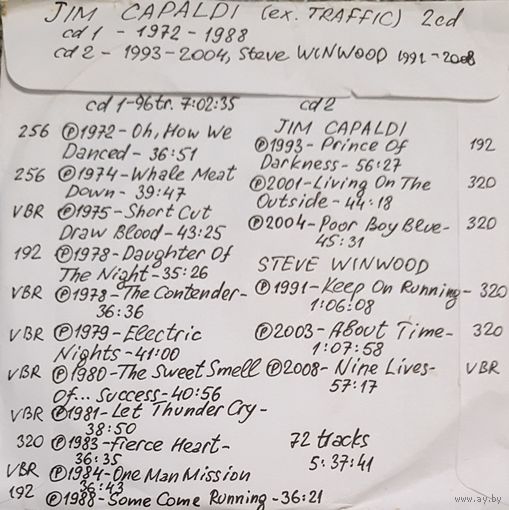 JIM CAPALDI (ex. TRAFFIC) 2cd
cd 1 - 1972 - 1988
cd 2 - 1993-2004, Steve WINWOOD 1991-2008
cd 1-96tr. 7:02:35
256 ℗1972-Oh, How We
Danced - 36:51
256 ℗1974-Whale Meat
Down - 39:47
VBR ℗1975-Short Cut
Draw Blood-43:25
192 ℗1978-Daughter Of
The Night-35:26
VBR ℗1978-The Contender-
36:36
VBR ℗1979-Electric
Nights-41:00
VBR ℗1980-The Sweet Smell
Of... Success-40:56
VBR ℗1981-Let Thunder Cry-
38:50
320 ℗1983-Fierce Heart-
36:35
VBR ℗1984-One Man Mission
36:43
192 ℗1988-Some Come Running-36:21
cd 2
JIM CAPALDI
℗1993-Prince Of 192
Darkness-56:27
℗2001-Living On The 320
Outside-44:18
℗2004-Poor Boy Blue- 320
45:31
STEVE WINWOOD
℗1991-Keep On Running- 320
1:06:08
℗2003-About Time- 320
1:07:58
℗2008-Nine Lives- VBR
57:17
72 tracks
5:37:41
www.ay.by